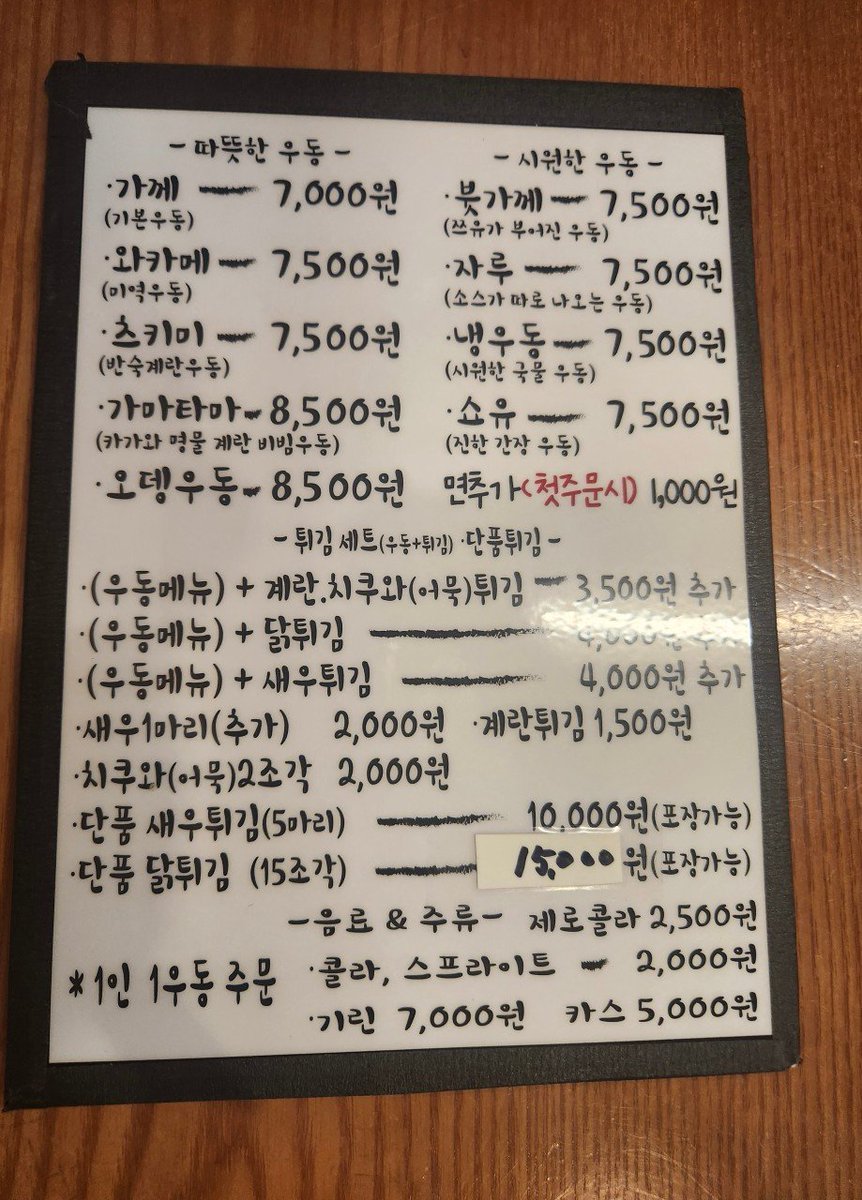 - 따뜻한 우동 -
·가께 — 7,000원
(기본우동)
·와카메 — 7,500원
(미역우동)
·츠키미 — 7,500원
(반숙계란우동)
·가마타마 - 8,500원
(카가와 명물 계란 비빔우동)
·오뎅우동 - 8,500원
- 시원한 우동 -
·붓가께 — 7,500원
(쯔유가 부어진 우동)
·자루 — 7,500원
(소스가 따로 나오는 우동)
·냉우동 — 7,500원
(시원한 국물 우동)
·쇼유 — 7,500원
(진한 간장 우동)
면추가(첫주문시) 1,000원
- 튀김 세트(우동+튀김) · 단품튀김 -
·(우동메뉴) + 계란.치쿠와(어묵)튀김 — 3,500원 추가
·(우동메뉴) + 닭튀김 — 4,000원 추가
·(우동메뉴) + 새우튀김 — 4,000원 추가
·새우1마리(추가) 2,000원 ·계란튀김 1,500원
·치쿠와(어묵)2조각 2,000원
·단품 새우튀김(5마리) — 10.000원(포장가능)
·단품 닭튀김 (15조각) — 15,000원(포장가능)
-음료 & 주류- 제로콜라 2,500원
·콜라, 스프라이트 - 2,000원
*1인 1우동 주문
·기린 7,000원 카스 5,000원